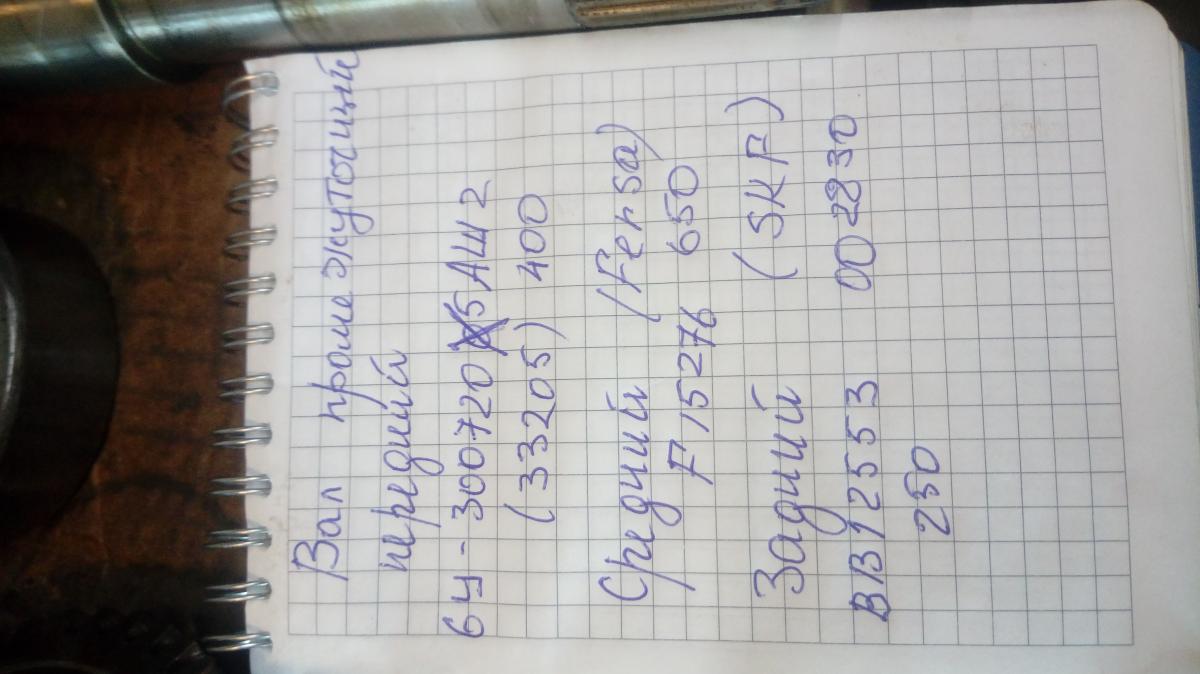 Вал промежуточный
передний
6У-300720 5АШ2
(33205) 400
Средний (Fersa)
F15276 650
Задний (SKF)
BB12553 002830
250